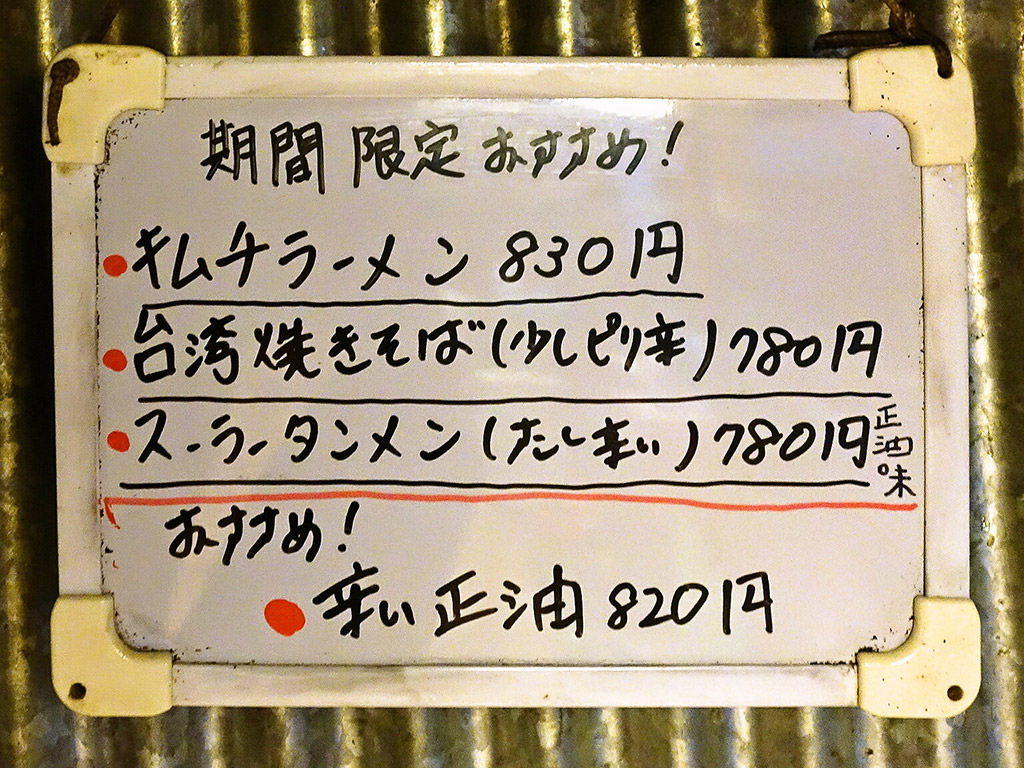 期間限定おすすめ!
・キムチラーメン 830円
・台湾焼きそば(少しピリ辛)780円
・スーラータンメン(たし辛い)780円
正油味
おすすめ!
・辛い正油 820円